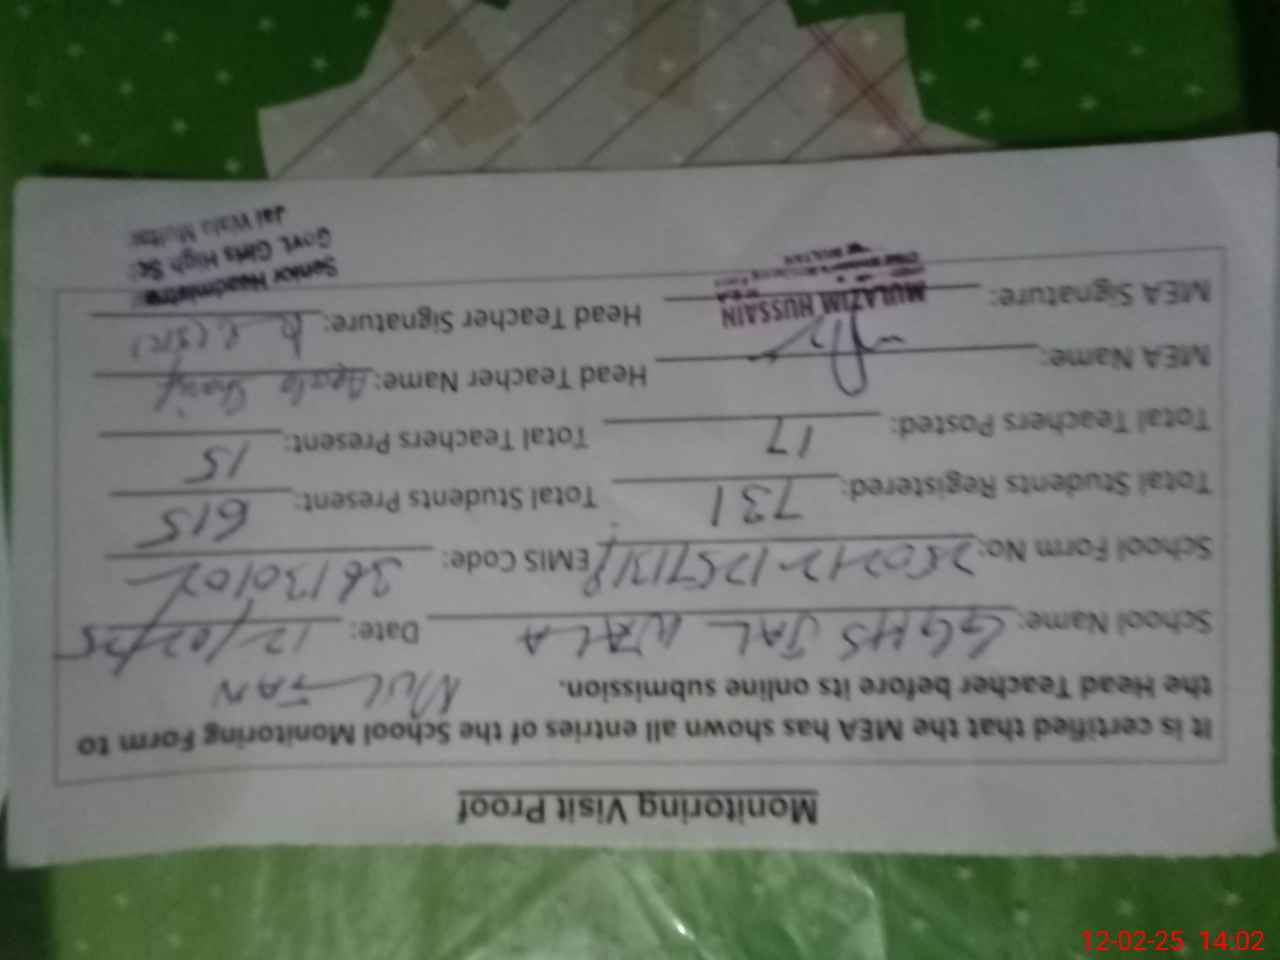 Monitoring Visit Proof
It is certified that the MEA has shown all entries of the School Monitoring Form to
the Head Teacher before its online submission. MULTAN
School Name: GGHS JAL WALA Date: 12/02/25
School Form No: EMIS Code:
Total Students Registered: 731 Total Students Present: 615
Total Teachers Posted: 17 Total Teachers Present: 15
MEA Name: Head Teacher Name:
MEA Signature: MULAZIM HUSSAIN Head Teacher Signature:
MULTAN
Senior Headmistress
Govt. Girls High
Jal Wala Multan
12-02-25 14:02